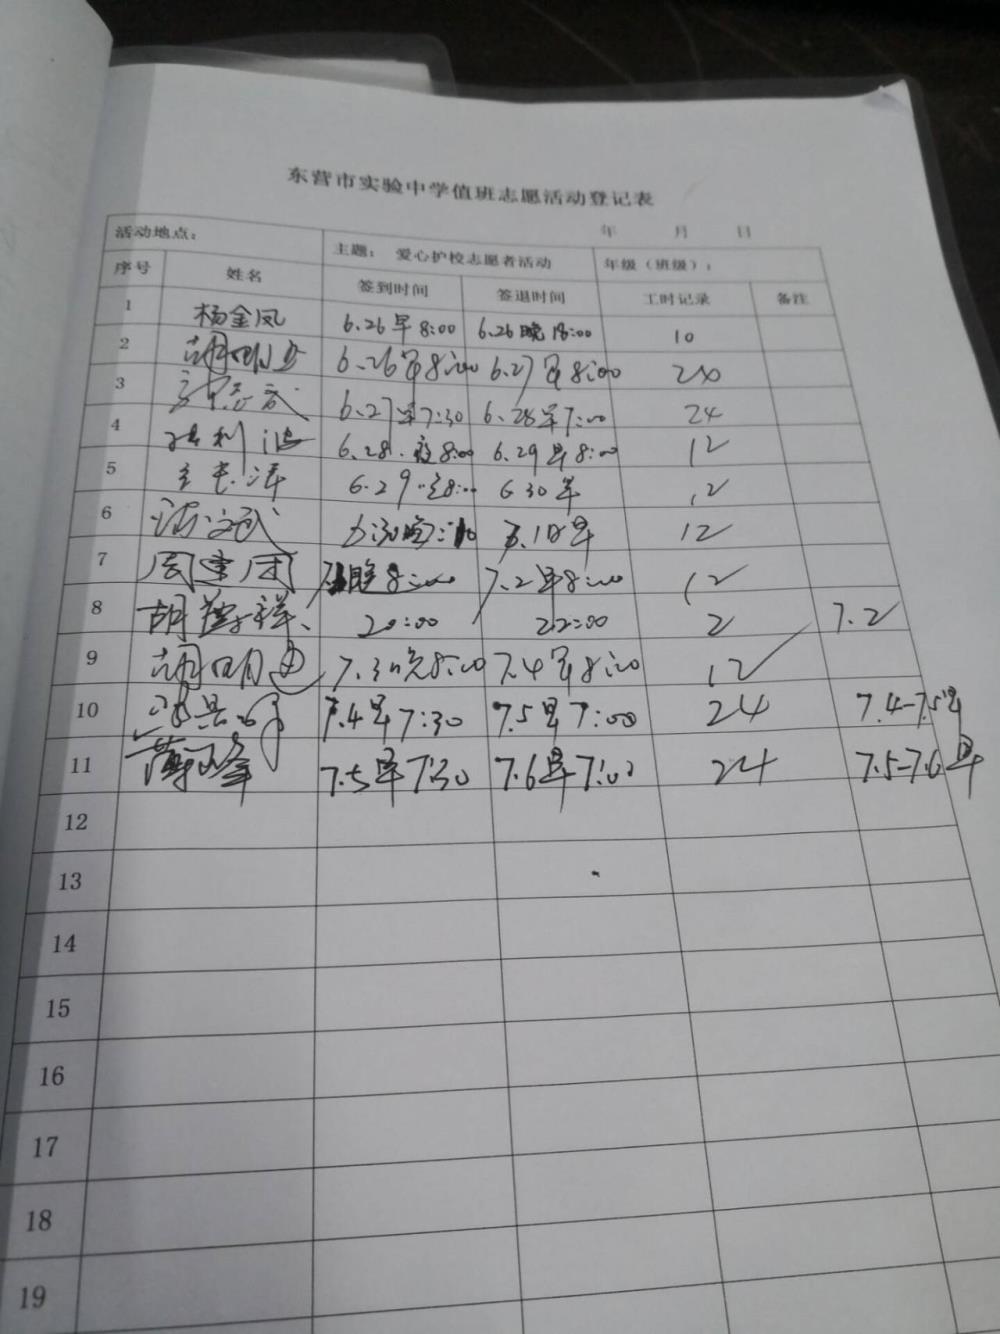 东营市实验中学值班志愿活动登记表
年 月 日
活动地点： 主题： 爱心护校志愿者活动 年级（班级）：
序号 姓名 签到时间 签退时间 工时记录 备注
1 杨金凤 6.26早8:00 6.26晚18:00 10
2 6.26早8:00 6.27早8:00 24
3 6.27早7:30 6.28早7:00 24
4 6.28.夜8:00 6.29早8:00 12
5 6.29 8:00 6.30早 12
6 6.30晚 早 12
7 周建团 晚8:00 7.2早8:00 12
8 胡 祥 20:00 22:00 2 7.2
9 胡明 7.3晚8:00 7.4早8:00 12
10 7.4早7:30 7.5早7:00 24 7.4-7.5早
11 薄 峰 7.5早7:30 7.6早7:00 24 7.5-7.6早
12
13
14
15
16
17
18
19